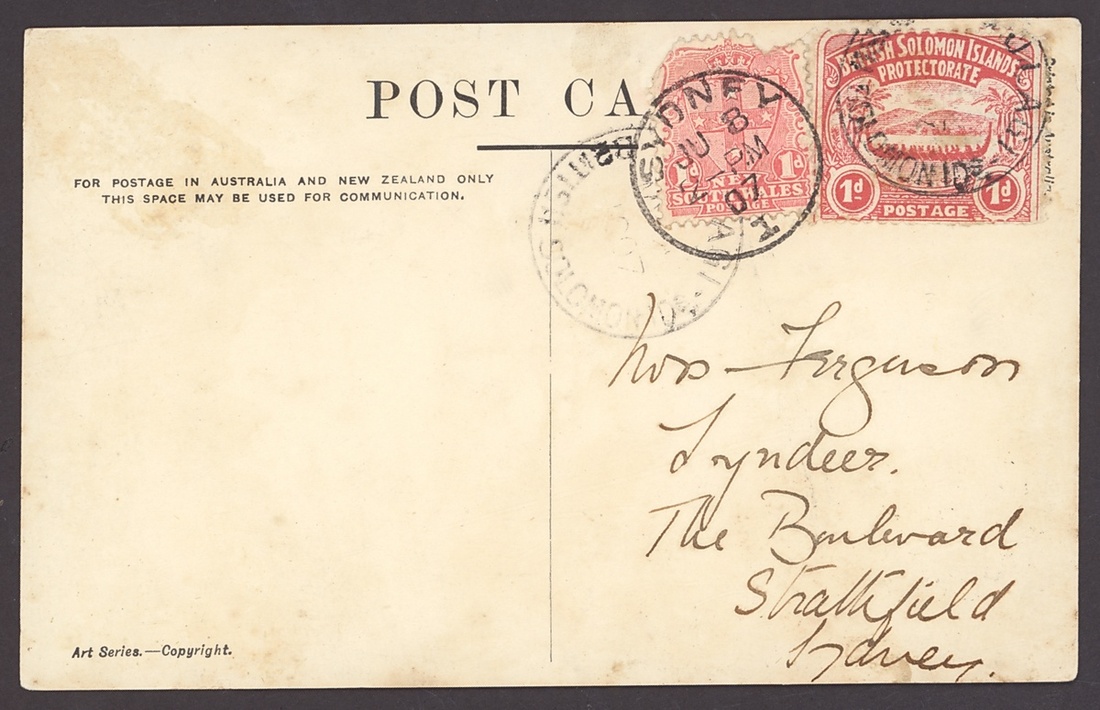 POST CA
FOR POSTAGE IN AUSTRALIA AND NEW ZEALAND ONLY
THIS SPACE MAY BE USED FOR COMMUNICATION.
1d NEW 1d
SOUTH WALES
POSTAGE
SYDNEY
8
JU
1 PM
07
BRITISH SOLOMON ISLANDS
PROTECTORATE
1d POSTAGE 1d
BRITISH SOLOMON IDS.
SOLOMON IDS.
in Australia
Ferguson
Lyndeer.
The Boulevard
Strathfield
Sydney.
Art Series.—Copyright.